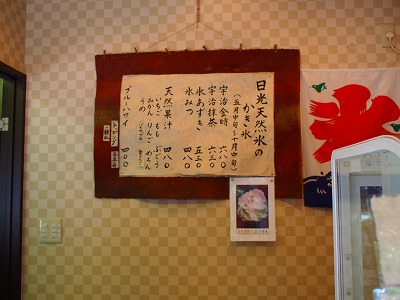 日光天然氷の
かき氷
(五月中旬〜十月中旬)
宇治金時 六八〇
宇治抹茶 六三〇
氷あずき 五三〇
氷みつ 四八〇
天然果汁 四八〇
いちご もも ぶどう
みかん りんご めろん
うめ
ブルーハワイ 四〇〇